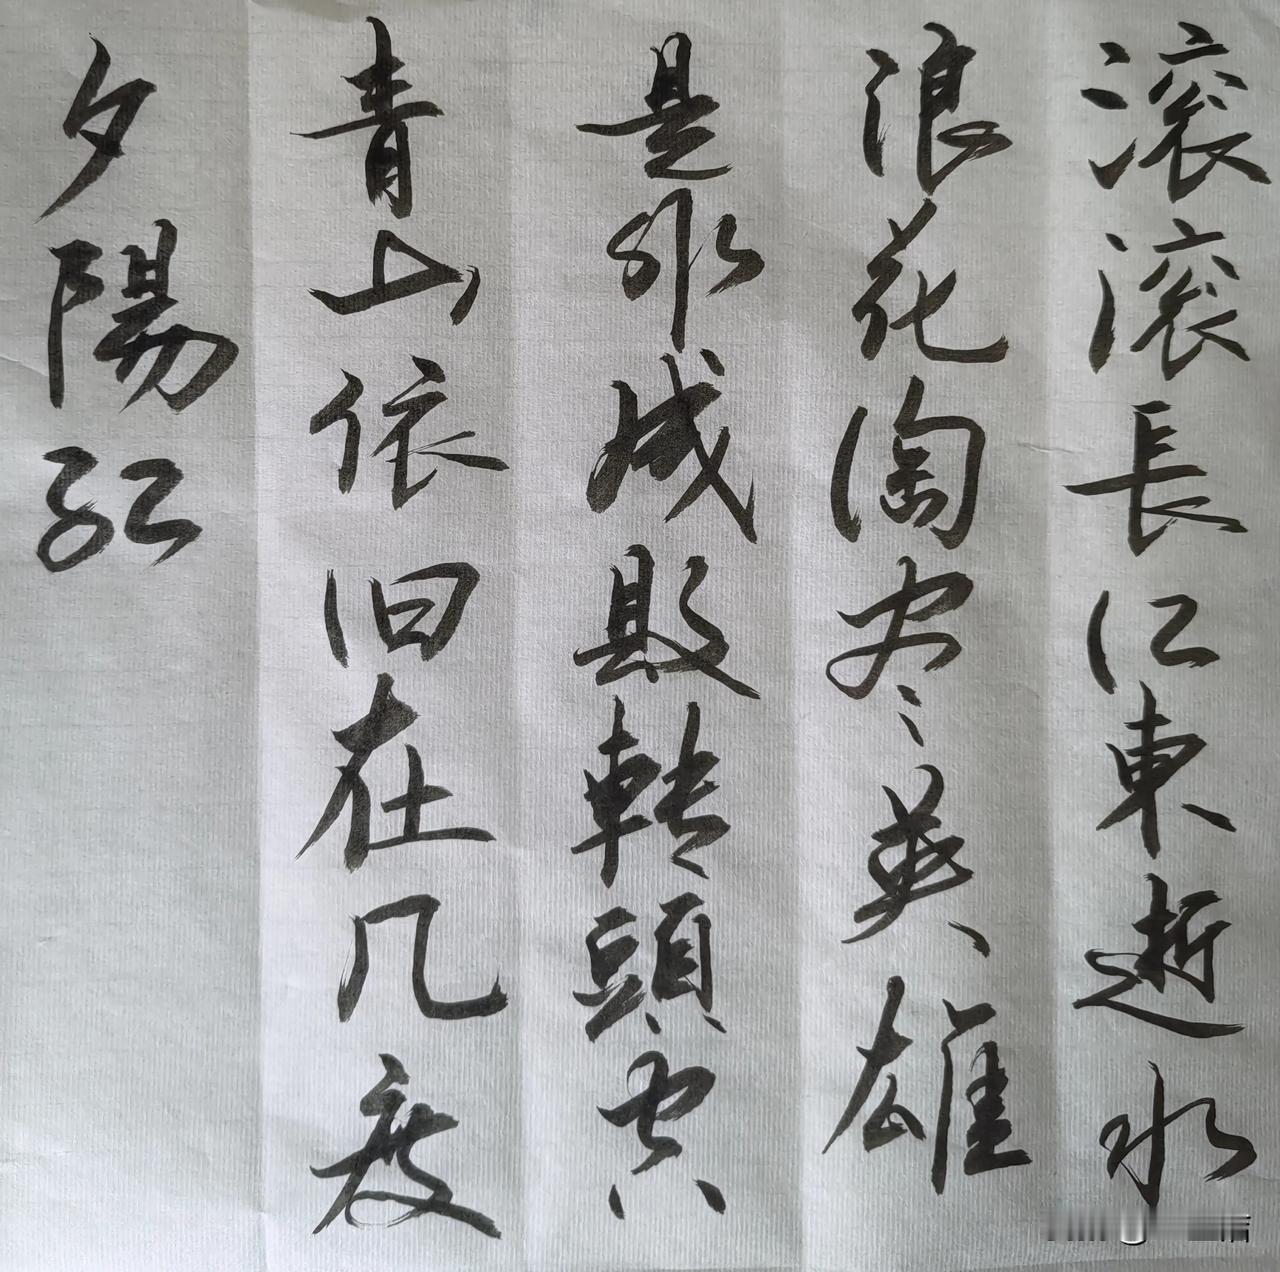 滚滚長江東逝水
浪花淘尽英雄
是非成敗轉頭空
青山依旧在几度
夕陽红